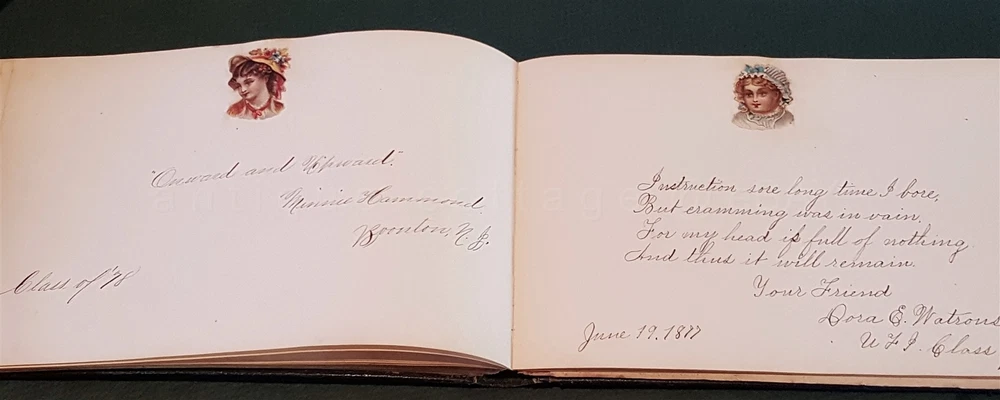 "Onward and Upward".
Minnie Hammond.
Boonton, N. J.
Class of '78
Instruction sore long time I bore,
But cramming was in vain,
For my head is full of nothing
And thus it will remain.
Your Friend
Dora E. Watrous
June 19. 1877
U F I. Class